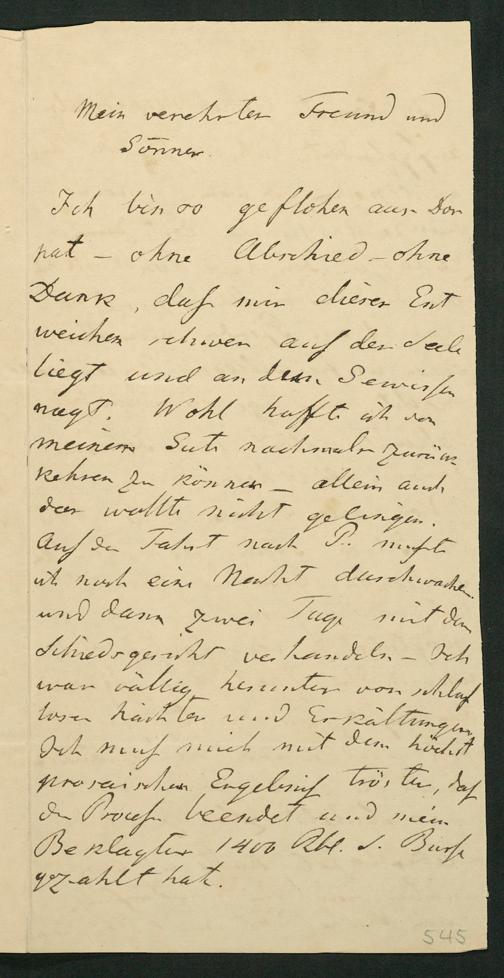 Mein verehrter Freund und
Gönner.
Ich bin so geflohen aus Dor
pat – ohne Abschied – ohne
Dank, daß mir dieses Ent
weichen schwer auf der Seele
liegt und an dem Gewissen
nagt. Wohl hoffte ich von
meinem Gute nochmals zurück
kehren zu können – allein auch
das wollte nicht gelingen.
Auf der Fahrt nach P. mußte
ich noch eine Nacht durchwachen
und dann zwei Tage mit dem
Schiedsgericht verhandeln – Ich
war völlig herunter von schlaf
losen Nächten und Erkältungen
Ich muß mich mit dem höchst
prosaischen Ergebniß trösten, daß
der Proceß beendet und mein
Beklagter 1400 Rbl. S. Buße
gezahlt hat.
545